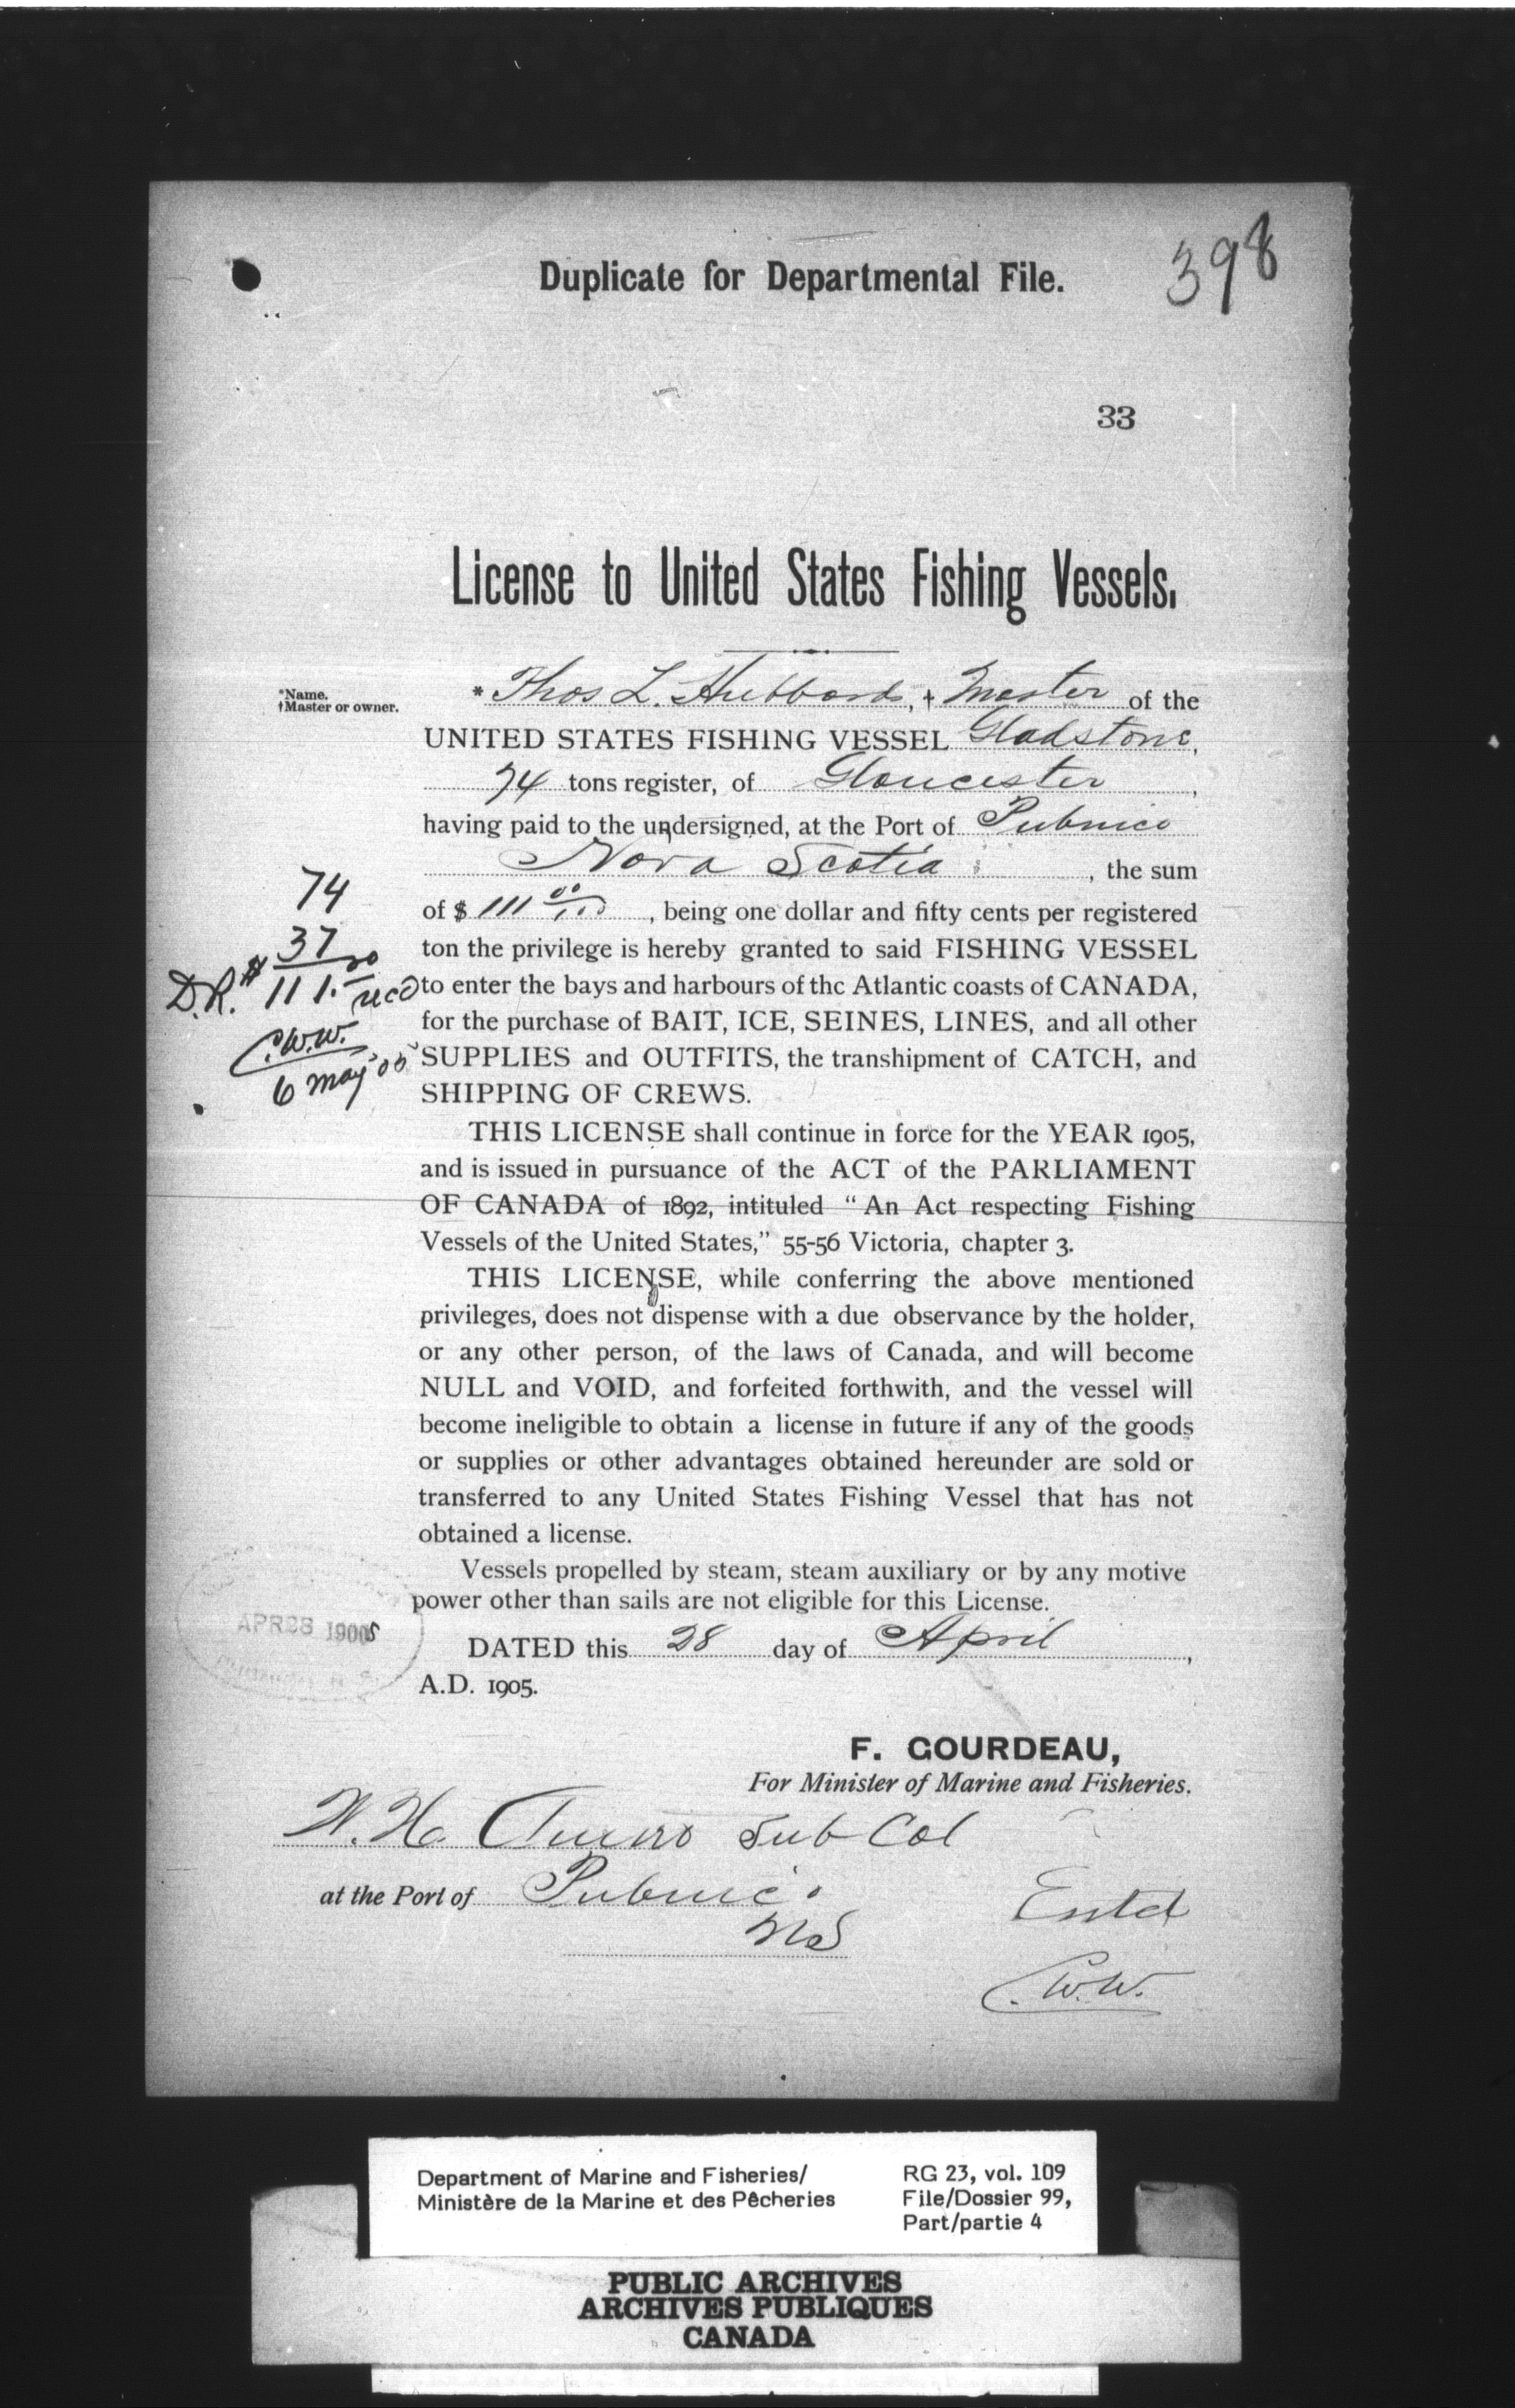 Duplicate for Departmental File.
398
33
License to United States Fishing Vessels.
*Name.
†Master or owner.
* Thos L. Hubbard, † Master of the
UNITED STATES FISHING VESSEL Gladstone,
74 tons register, of Gloucester,
having paid to the undersigned, at the Port of Pubnico
Nova Scotia, the sum
of $ 111 00/100, being one dollar and fifty cents per registered
ton the privilege is hereby granted to said FISHING VESSEL
to enter the bays and harbours of the Atlantic coasts of CANADA,
for the purchase of BAIT, ICE, SEINES, LINES, and all other
SUPPLIES and OUTFITS, the transhipment of CATCH, and
SHIPPING OF CREWS.
74
37
D.R. $ 111.00 recd
C.W.W.
6 May '05
THIS LICENSE shall continue in force for the YEAR 1905,
and is issued in pursuance of the ACT of the PARLIAMENT
OF CANADA of 1892, intituled “An Act respecting Fishing
Vessels of the United States,” 55-56 Victoria, chapter 3.
THIS LICENSE, while conferring the above mentioned
privileges, does not dispense with a due observance by the holder,
or any other person, of the laws of Canada, and will become
NULL and VOID, and forfeited forthwith, and the vessel will
become ineligible to obtain a license in future if any of the goods
or supplies or other advantages obtained hereunder are sold or
transferred to any United States Fishing Vessel that has not
obtained a license.
Vessels propelled by steam, steam auxiliary or by any motive
power other than sails are not eligible for this License.
APR 28 1905
DATED this 28 day of April,
A.D. 1905.
F. GOURDEAU,
For Minister of Marine and Fisheries.
W. H. Sub Col
at the Port of Pubnico
NS
Entd
C.W.W.
Department of Marine and Fisheries/
Ministère de la Marine et des Pêcheries
RG 23, vol. 109
File/Dossier 99,
Part/partie 4
PUBLIC ARCHIVES
ARCHIVES PUBLIQUES
CANADA